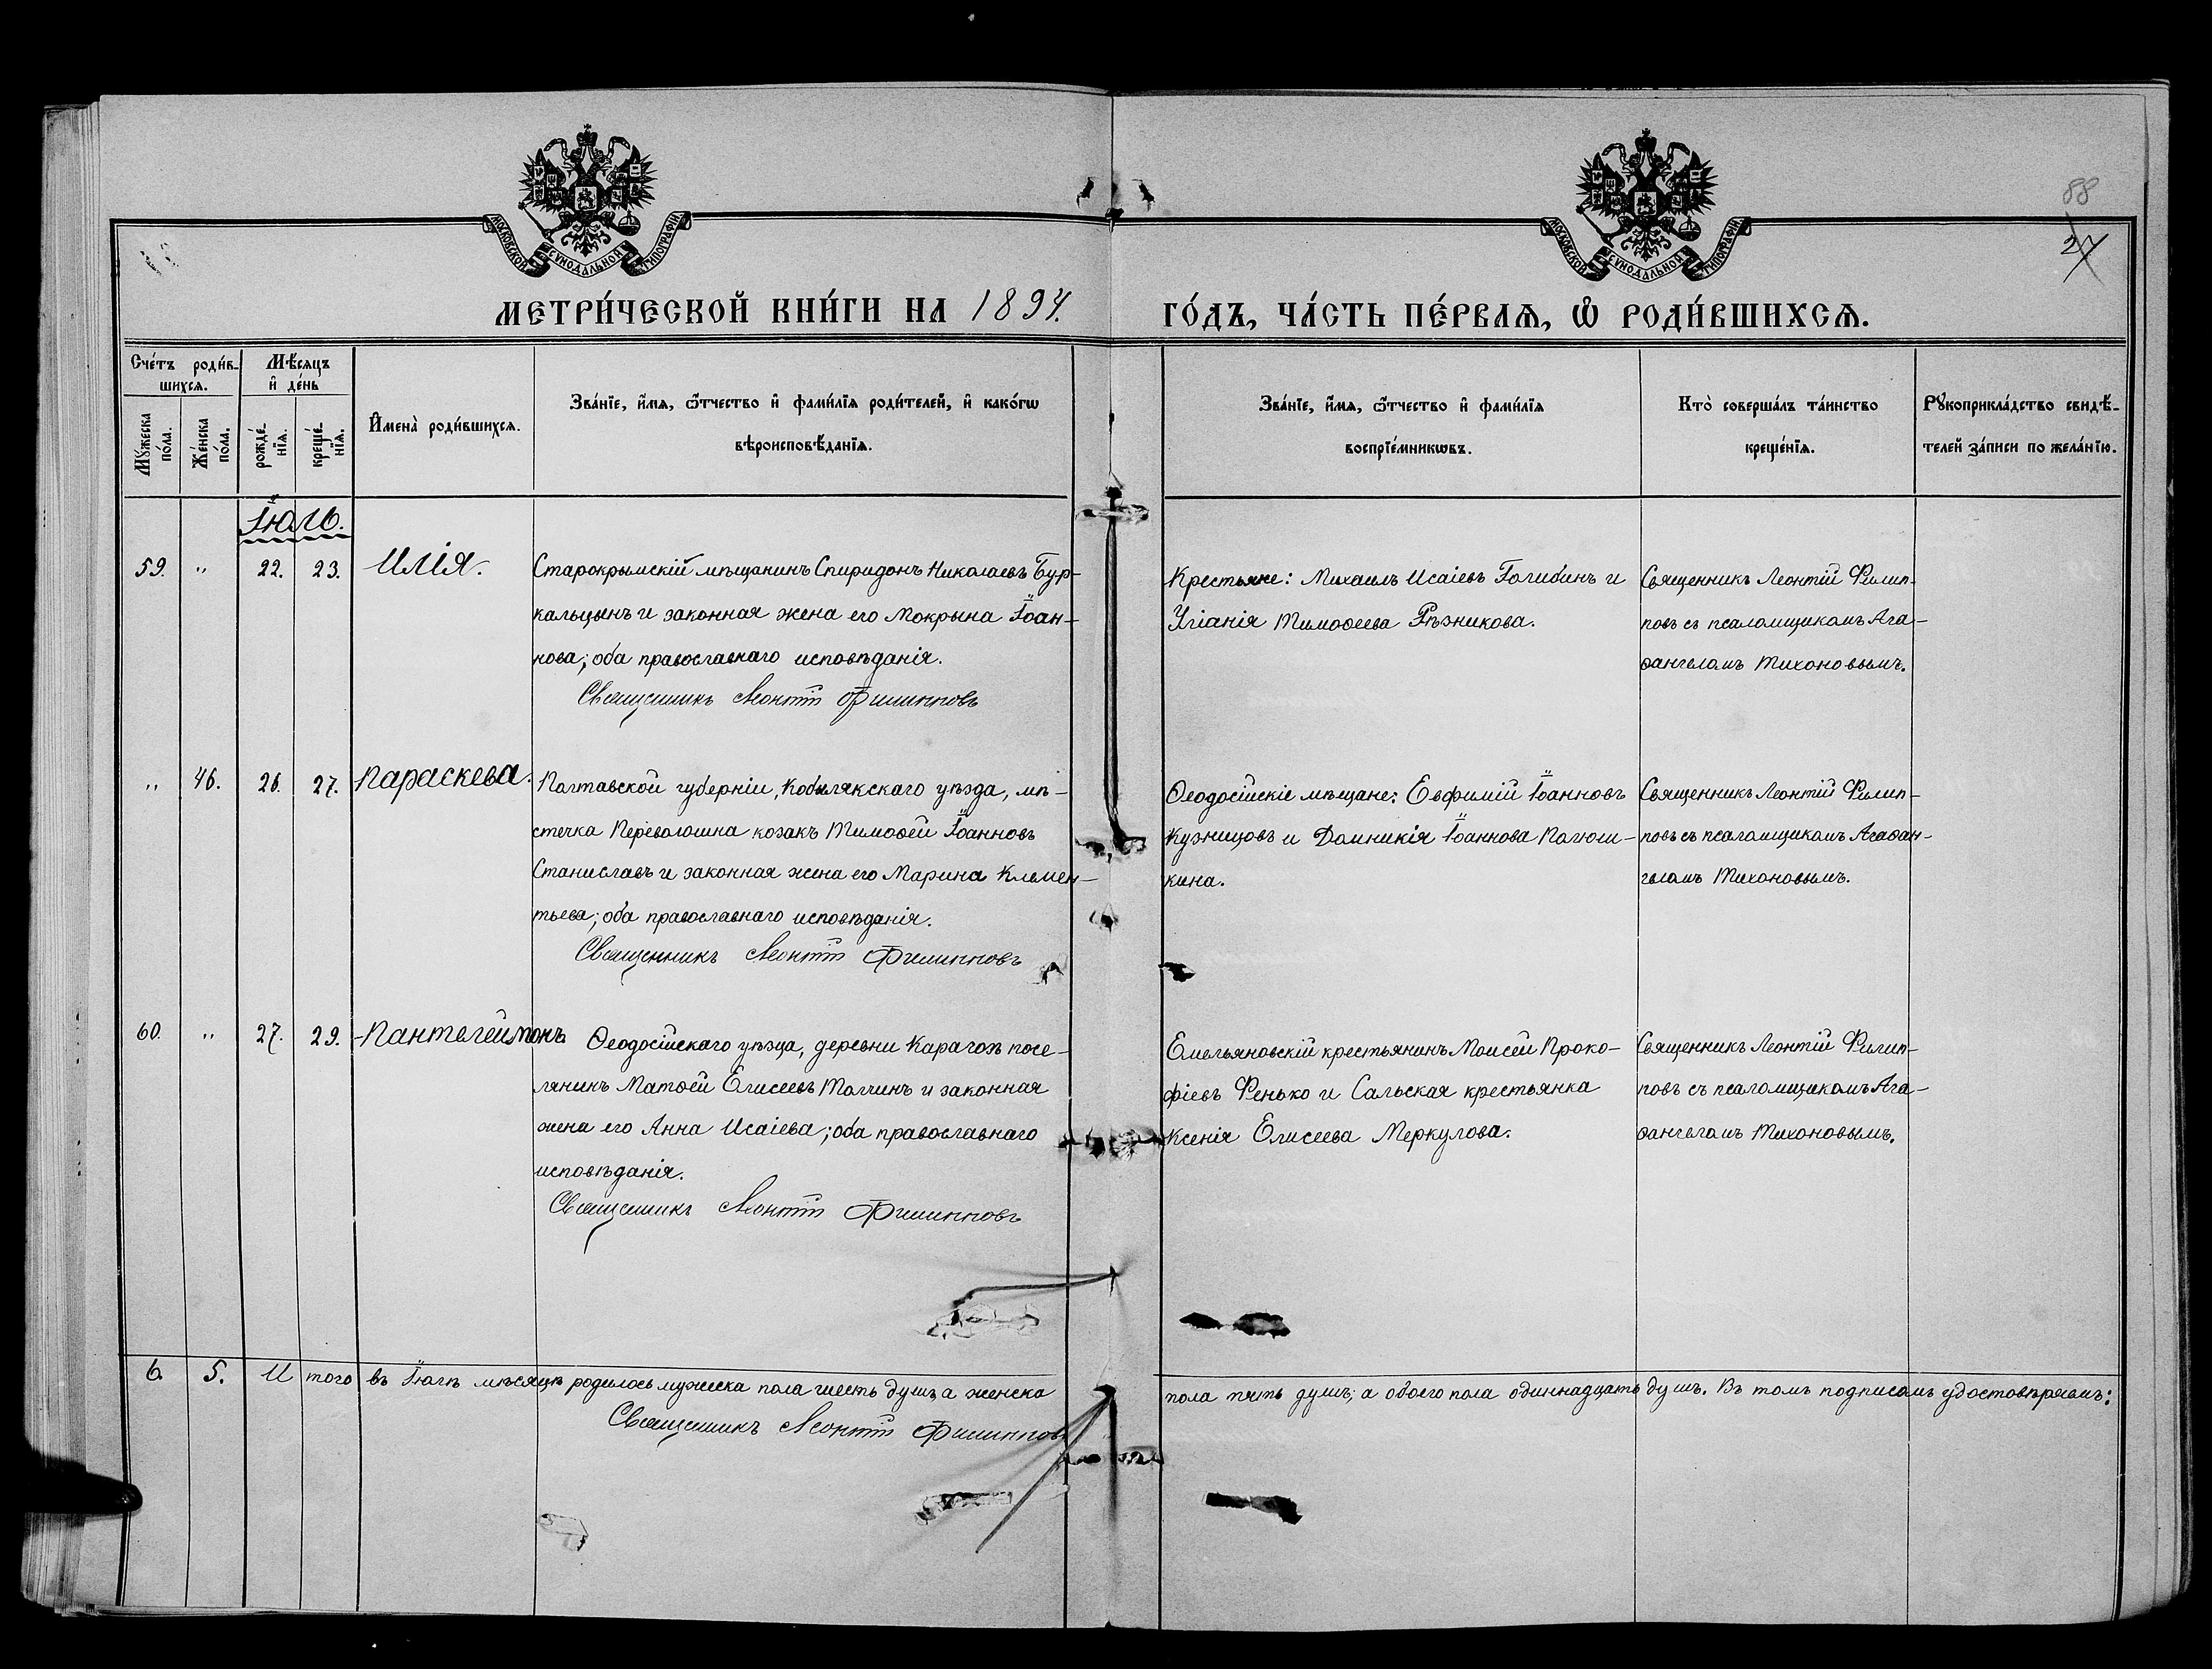 88
27
МОСКОВСКОЙ СѴНОДАЛЬНОЙ ТИПОГРАФІИ
МОСКОВСКОЙ СѴНОДАЛЬНОЙ ТИПОГРАФІИ
МЕТРИ́ЧЕСКОЙ КНИ́ГИ НА 1894. ГО́ДЪ, ЧА́СТЬ ПЕ́РВАѦ, Ѡ҆ РОДИ́ВШИХСѦ.
Сче́тъ роди́в-
шихсѧ.
Мѣ́сѧцъ
и҆ де́нь
Мꙋ́жеска
по́ла.
Же́нска
по́ла.
рожде́-
нїѧ.
креще́-
нїѧ.
И҆мена̀ роди́вшихсѧ.
Зва́нїе, и҆́мѧ, ѻ҆́тчество и҆ фами́лїѧ роди́телей, и҆ како́гѡ
вѣроисповѣ́данїѧ.
Зва́нїе, и҆́мѧ, ѻ҆́тчество и҆ фами́лїѧ
воспрїе́мникѡвъ.
Кто̀ соверша́лъ та́инство
креще́нїѧ.
Рꙋкоприкла́дство свидѣ́-
телей за́писи по жела́нїю.
Іюль.
59. " 22. 23. Илія.
Старокрымскій мѣщанинъ Спиридонъ Николаевъ Бур-
кальцынъ и законная жена его Мокрына Іоан-
нова; оба православнаго исповѣданія.
Священникъ Леонтій Филипповъ
Крестьяне: Михаилъ Исаіевъ Голибинъ и
Уліанія Тимоѳеева Рѣзникова.
Священникъ Леонтій Филип-
повъ съ псаломщикомъ Ага-
ѳангеломъ Тихоновымъ.
" 46. 26. 27. Параскева.
Полтавской губерніи, Кобылякскаго уѣзда, мѣ-
стечка Переволошна козакъ Тимоѳей Іоанновъ
Станиславъ и законная жена его Марина Клемен-
тьева; оба православнаго исповѣданія.
Священникъ Леонтій Филипповъ
Ѳеодосійскіе мѣщане: Евфимій Іоанновъ
Кузницовъ и Домникія Іоаннова Полюш-
кина.
Священникъ Леонтій Филип-
повъ съ псаломщикомъ Агаѳан-
геломъ Тихоновымъ.
60. " 27. 29. Пантелеймонъ.
Ѳеодосійскаго уѣзда, деревни Карагозъ посе-
лянинъ Матѳей Елисеевъ Толчинъ и законная
жена его Анна Исаіева; оба православнаго
исповѣданія.
Священникъ Леонтій Филипповъ
Емельяновскій крестьянинъ Моисей Проко-
фіевъ Фенько и Сальская крестьянка
Ксенія Елисеева Меркулова.
Священникъ Леонтій Филип-
повъ съ псаломщикомъ Ага-
ѳангеломъ Тихоновымъ.
6. 5. Итого въ Іюлѣ мѣсяцѣ родилось мужеска пола шесть душъ, а женска пола пять душъ; а обоего пола одиннадцать душъ. Въ томъ подписомъ удостовѣряемъ:
Священникъ Леонтій Филипповъ